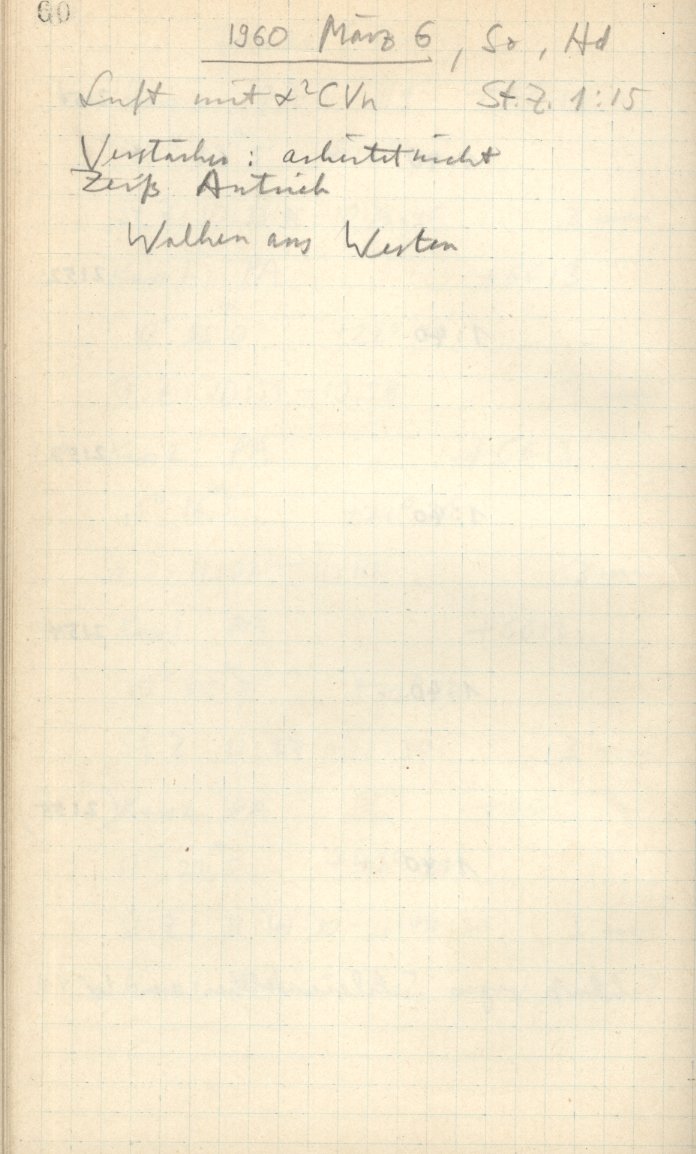 60
1960 März 6, So, Hd
Luft mit α²CVn St.Z. 1:15
Verstärker: arbeitet nicht
Zeiß Antrieb
Wolken aus Westen